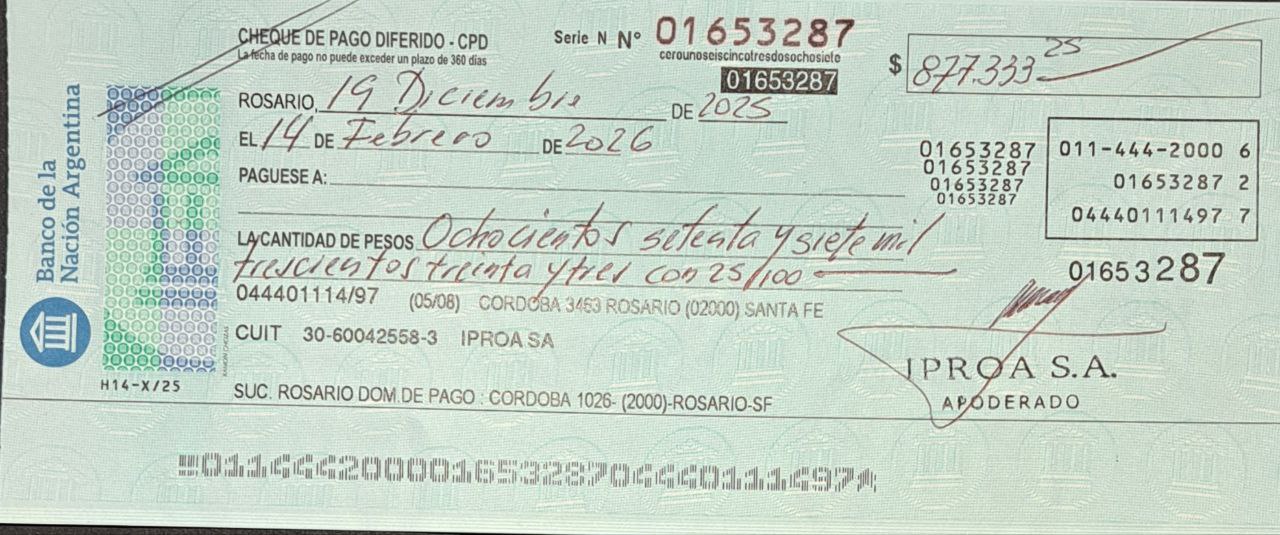 CHEQUE DE PAGO DIFERIDO - CPD
La fecha de pago no puede exceder un plazo de 360 días
Serie N Nº 01653287
cerounoseiscincotresdosochosiete
01653287
$ 877.333 25
ROSARIO, 19 Diciembre DE 2025
EL 14 DE Febrero DE 2026
PAGUESE A:
01653287
01653287
01653287
01653287
011-444-2000 6
01653287 2
04440111497 7
01653287
LA CANTIDAD DE PESOS Ochocientos setenta y siete mil
trescientos treinta y tres con 25/100
044401114/97 (05/08) CORDOBA 3463 ROSARIO (02000) SANTA FE
CUIT 30-60042558-3 IPROA SA
IPROA S.A.
APODERADO
SUC. ROSARIO DOM.DE PAGO : CORDOBA 1026- (2000)-ROSARIO-SF
Banco de la
Nación Argentina
H14-X/25
011444200001653287044401114977